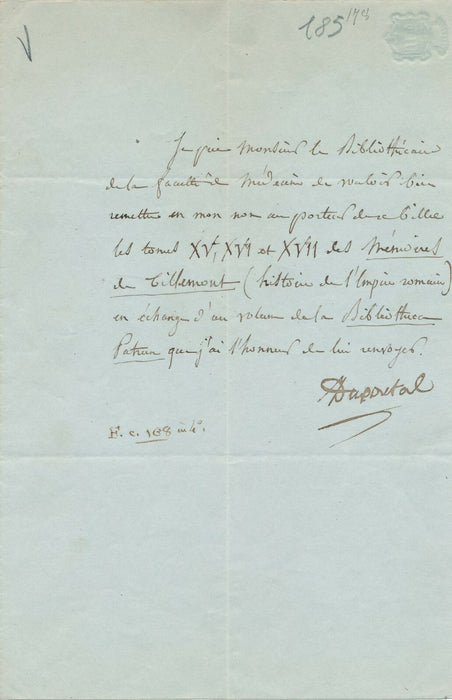 185 173
Je prie Monsieur le Bibliothécaire
de la faculté de Médecine de vouloir bien
remettre en mon nom au porteur de ce billet
les tomes XV, XVI et XVII des Mémoires
de Tillemont (histoire de l'Empire romain)
en échange d'un volume de la Bibliotheca
Patrum que j'ai l'honneur de lui renvoyer.
Duportal
F. c. 168 in 4°.